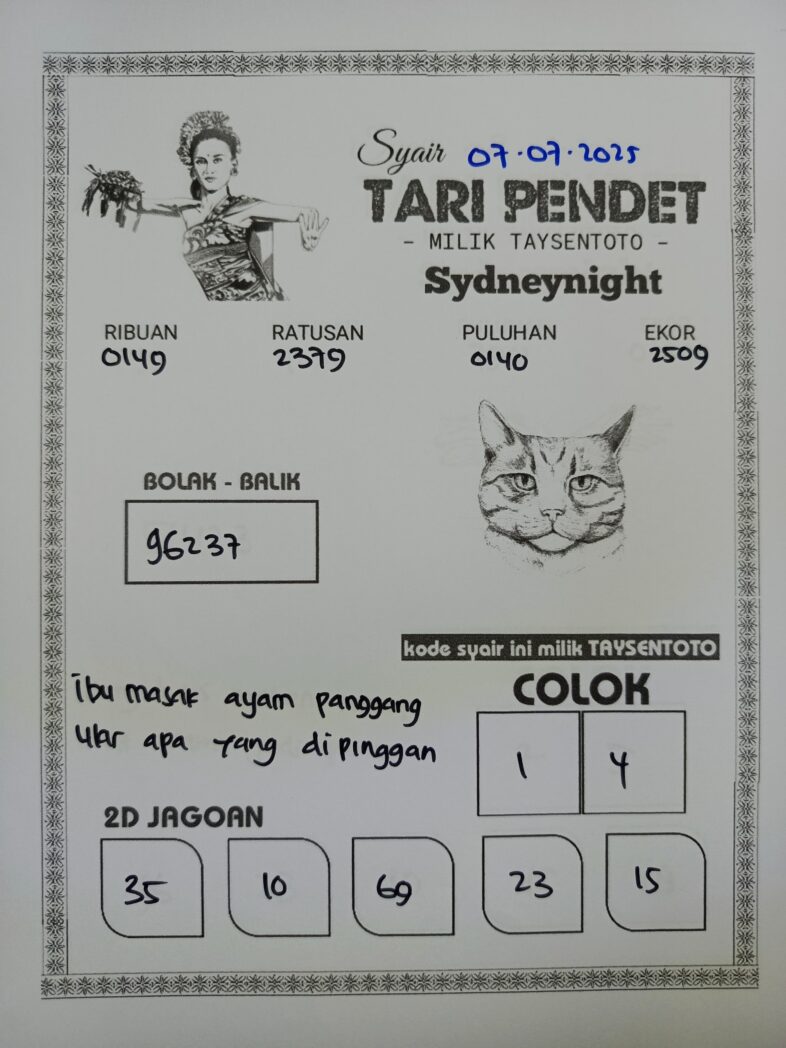 Syair 07.07.2025
TARI PENDET
- MILIK TAYSENTOTO -
Sydneynight
RIBUAN RATUSAN PULUHAN EKOR
0149 2379 0140 2509
BOLAK - BALIK
96237
kode syair ini milik TAYSENTOTO
ibu masak ayam panggang
ular apa yang dipinggan
COLOK
1 4
2D JAGOAN
35 10 69 23 15